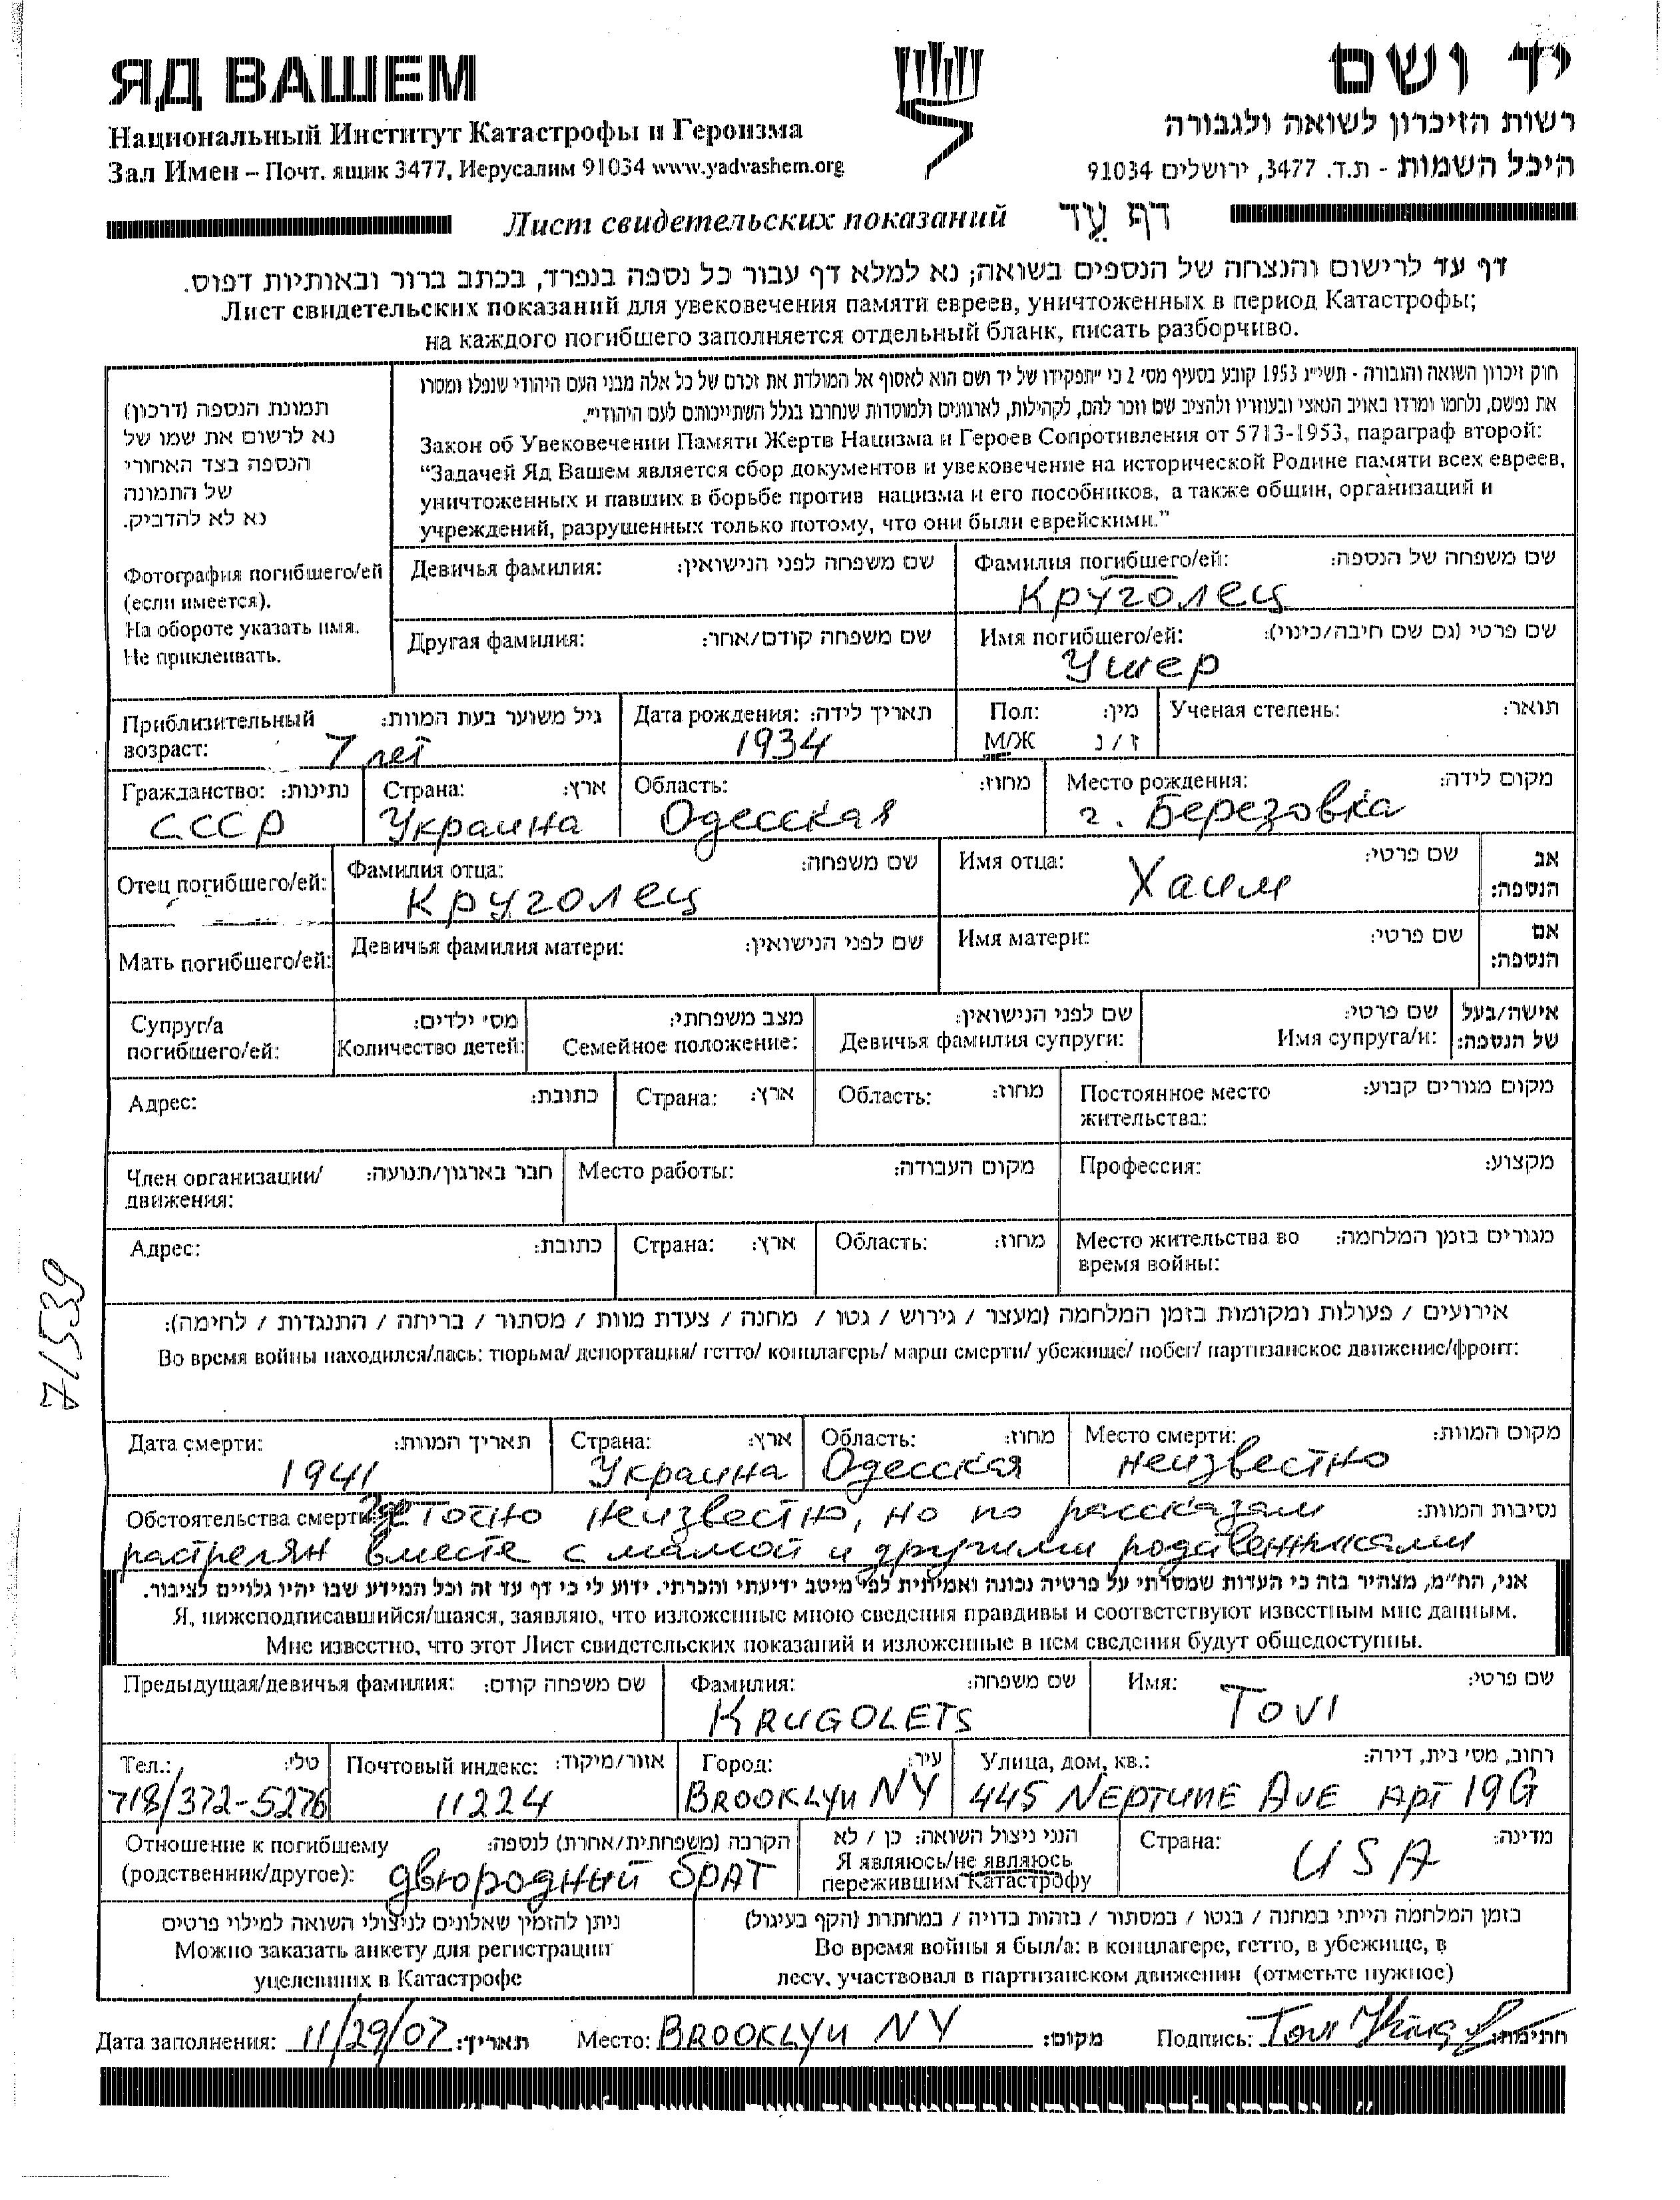 ЯД ВАШЕМ
יד ושם
Национальный Институт Катастрофы и Героизма
רשות הזיכרון לשואה ולגבורה
Зал Имен – Почт. ящик 3477, Иерусалим 91034 www.yadvashem.org
היכל השמות - ת.ד. 3477, ירושלים 91034
Лист свидетельских показаний דף עד
דף עד לרישום והנצחה של הנספים בשואה; נא למלא דף עבור כל נספה בנפרד, בכתב ברור ובאותיות דפוס.
Лист свидетельских показаний для увековечения памяти евреев, уничтоженных в период Катастрофы;
на каждого погибшего заполняется отдельный бланк, писать разборчиво.
תמונת הנספה (דרכון)
נא לרשום את שמו של
הנספה בצד האחורי
של התמונה
נא לא להדביק.
Фотография погибшего/ей
(если имеется).
На обороте указать имя.
Не приклеивать.
חוק זיכרון השואה והגבורה - תשי"ג 1953 קובע בסעיף מס' 2 כי "תפקידו של יד ושם הוא לאסוף אל המולדת את זכרם של כל אלה מבני העם היהודי שנפלו ומסרו
את נפשם, נלחמו ומרדו באויב הנאצי ובעוזריו ולהציב שם וזכר להם, לקהילות, לארגונים ולמוסדות שנחרבו בגלל השתייכותם לעם היהודי".
Закон об Увековечении Памяти Жертв Нацизма и Героев Сопротивления от 5713-1953, параграф второй:
“Задачей Яд Вашем является сбор документов и увековечение на исторической Родине памяти всех евреев,
уничтоженных и павших в борьбе против нацизма и его пособников, а также общин, организаций и
учреждений, разрушенных только потому, что они были еврейскими.”
Девичья фамилия: שם משפחה לפני הנישואין: Фамилия погибшего/ей: שם משפחה של הנספה:
Круголец
Другая фамилия: שם משפחה קודם/אחר: Имя погибшего/ей: שם פרטי (גם שם חיבה/כינוי):
Ушер
Приблизительный возраст: גיל משוער בעת המוות: Дата рождения: תאריך לידה: Пол: מין: Ученая степень: תואר:
7 лет 1934 М/Ж ז / נ
Гражданство: נתינות: Страна: ארץ: Область: מחוז: Место рождения: מקום לידה:
СССР Украина Одесская г. Березовка
Отец погибшего/ей: Фамилия отца: שם משפחה: Имя отца: שם פרטי: אב הנספה:
Круголец Хаим
Мать погибшего/ей: Девичья фамилия матери: שם לפני הנישואין: Имя матери: שם פרטי: אם הנספה:
Супруг/а погибшего/ей: מס' ילדים: Количество детей: מצב משפחתי: Семейное положение: שם לפני הנישואין: Девичья фамилия супруги: שם פרטי: Имя супруга/и: אישה/בעל של הנספה:
Адрес: כתובת: Страна: ארץ: Область: מחוז: Постоянное место жительства: מקום מגורים קבוע:
Член организации/движения: חבר בארגון/תנועה: Место работы: מקום העבודה: Профессия: מקצוע:
Адрес: כתובת: Страна: ארץ: Область: מחוז: Место жительства во время войны: מגורים בזמן המלחמה:
71539
אירועים / פעולות ומקומות בזמן המלחמה (מעצר / גירוש / גטו / מחנה / צעדת מוות / מסתור / בריחה / התנגדות / לחימה):
Во время войны находился/лась: тюрьма/ депортация/ гетто/ концлагерь/ марш смерти/ убежище/ побег/ партизанское движение/фронт:
Дата смерти: תאריך המוות: Страна: ארץ: Область: מחוז: Место смерти: מקום המוות:
1941 Украина Одесская неизвестно
Обстоятельства смерти: Точно неизвестно, но по рассказам נסיבות המוות:
растрелян вместе с мамой и другими родственниками
אני, הח"מ, מצהיר בזה כי העדות שמסרתי על פרטיה נכונה ואמיתית לפי מיטב ידיעתי והכרתי. ידוע לי כי דף עד זה וכל המידע שבו יהיו גלויים לציבור.
Я, нижеподписавшийся/шаяся, заявляю, что изложенные мною сведения правдивы и соответствуют известным мне данным.
Мне известно, что этот Лист свидетельских показаний и изложенные в нем сведения будут общедоступны.
Предыдущая/девичья фамилия: שם משפחה קודם: Фамилия: שם משפחה: Имя: שם פרטי:
KRUGOLETS TOVI
Тел.: טלי: Почтовый индекс: אזור/מיקוד: Город: עיר: Улица, дом, кв.: רחוב, מס' בית, דירה:
718/372-5276 11224 BROOKLYN NY 445 NEPTUNE AVE APT 19G
Отношение к погибшему (родственник/другое): הקרבה (משפחתית/אחרת) לנספה: הנני ניצול השואה: כן / לא Я являюсь/не являюсь пережившим Катастрофу Страна: מדינה:
двюродный брат USA
ניתן להזמין שאלונים לניצולי השואה למילוי פרטים
Можно заказать анкету для регистрации
уцелевших в Катастрофе
בזמן המלחמה הייתי במחנה / בגטו / במסתור / בזהות בדויה / במחתרת (הקף בעיגול)
Во время войны я был/а: в концлагере, гетто, в убежище, в
лесу, участвовал в партизанском движении (отметьте нужное)
Дата заполнения: 11/29/07 תאריך: Место: BROOKLYN NY מקום: Подпись: Tovi חתימה: